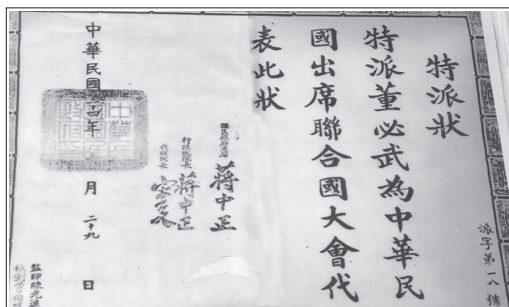 特派狀
特派董必武為中華民
國出席聯合國大會代
表此狀
國民政府主席 蔣中正
行政院院長 蔣中正
代理院長 宋子文
中華民國 十四年 月 二十九 日
派字第一八號